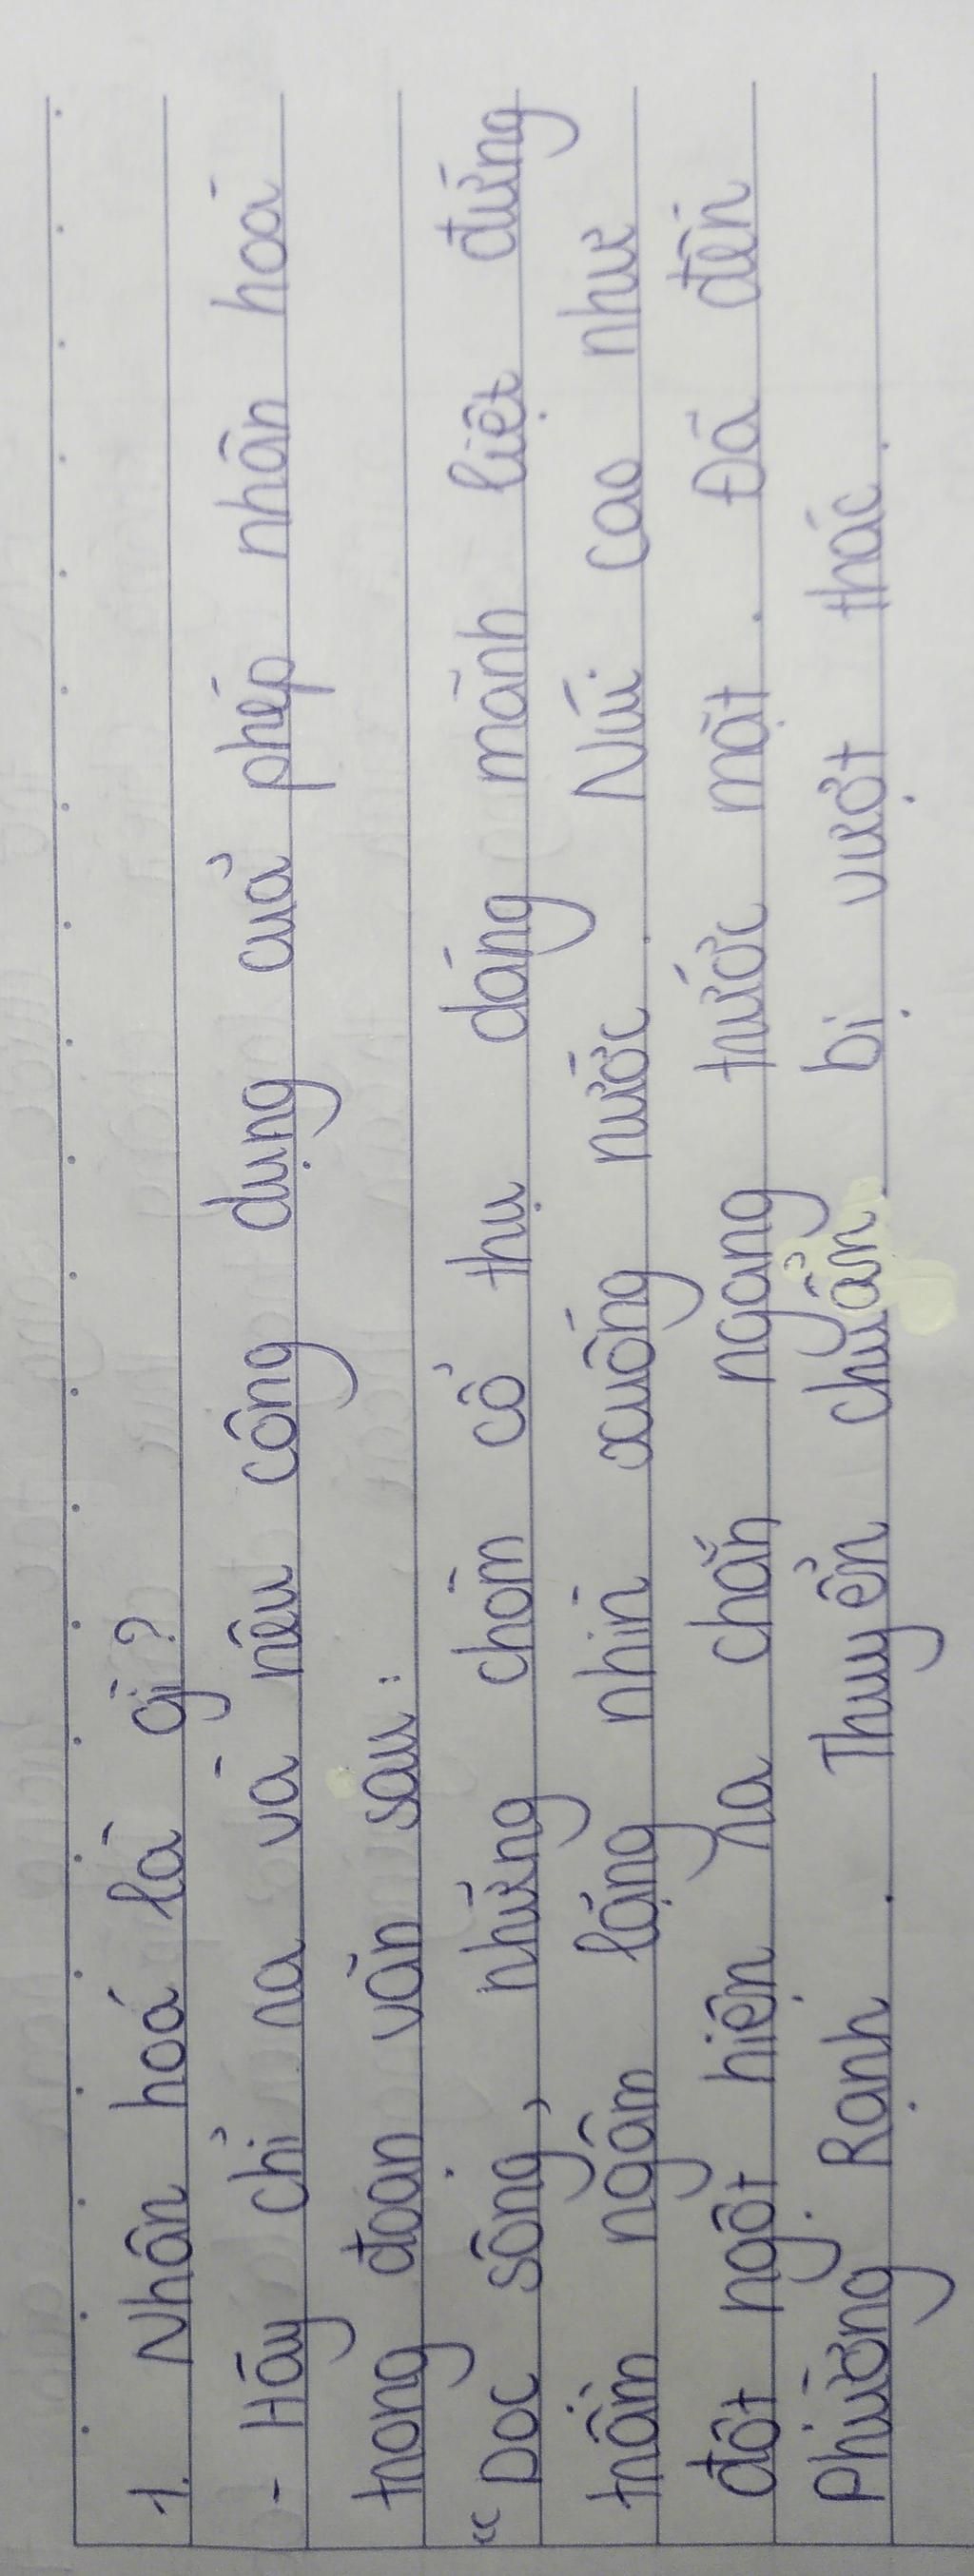 1. Nhân hoá là gì?
- Hãy chỉ ra và nêu công dụng cuả phép nhân hoá
trong đoạn văn sau:
" Dọc sông, những chòm cổ thụ dáng mãnh liệt đứng
trầm ngâm lặng nhìn xuống nước. Núi cao như
đột ngột hiện ra chắn ngang trước mặt. Đã đến
Phường Rạnh. Thuyền chuẩn bị vượt thác.